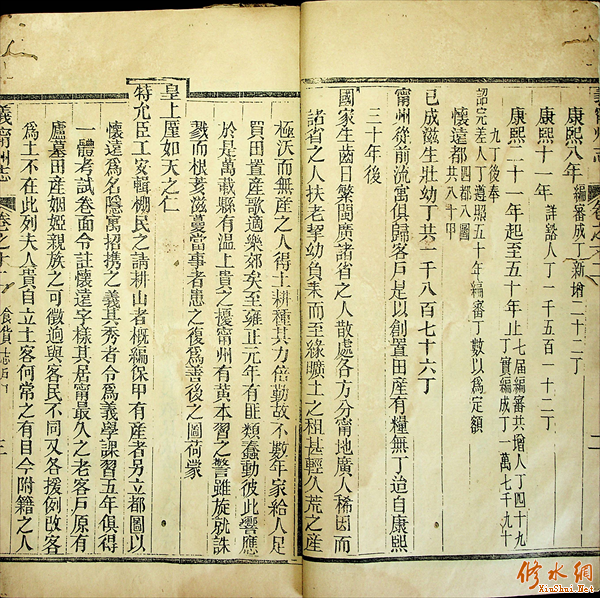 康熙八年 編審成丁新增二十二丁
康熙十一年 詳豁人丁一千五百一十二丁
康熙二十一年起至五十年止 七屆編審共增人丁四十九
丁實編成丁一萬七千九十
九丁後奉
詔完差人丁遵照五十年編審丁數以爲定額
懷遠都 四都八圖
共八十甲
已成滋生壯幼丁共二千八百七十六丁
甯州從前流寓俱歸客戶是以創置田產有糧無丁迨自康熙
三十年後
國家生齒日繁閩廣諸省之人散處各方分甯地廣人稀因而
諸省之人扶老挈幼負耒而至緣曠土之租甚輕久荒之產
極沃而無產之人得土耕種其力倍勤故不數年家給人足
買田置產歌適樂郊矣至雍正元年有匪類蠢動彼此響應
於是萬載縣有溫上貴之擾甯州有黃本習之警雖旋就誅
戮而根荄滋蔓當事者患之復爲善後之圖荷蒙
皇上厪如天之仁
特允臣工安輯棚民之請耕山者概編保甲有產者另立都圖以
懷遠爲名隱寓招携之義其秀者令爲義學課習五年俱得
一體考試卷面令註懷遠字樣其居甯最久之老客戶原有
廬墓田產姻婭親族之可徵過與客民不同又各援例改客
爲土不在此列夫人貴自立土客何常之有目今附籍之人
義甯州志 卷之十二 食貨志 三
修水網
XiuShui.Net